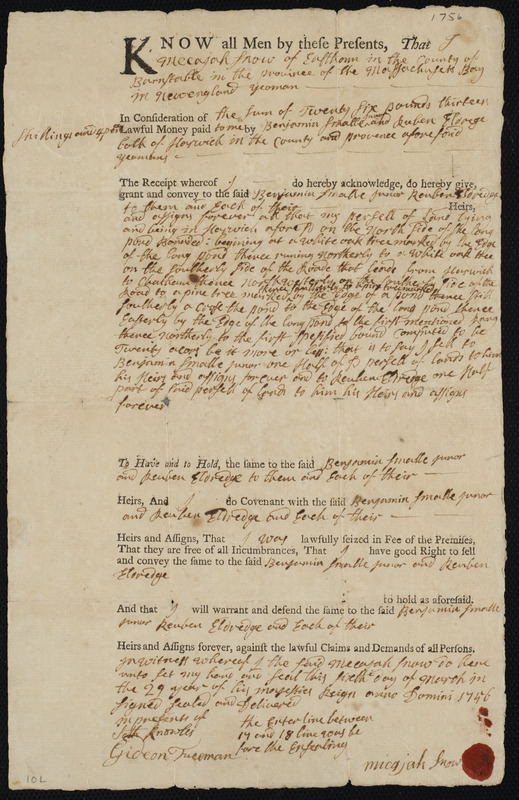 1756
KNOW all Men by these Presents, That I
Mecajah Snow of Easthom in the County of
Barnstable in the province of the Massachusets Bay
in Newengland yeoman
In Consideration of the sum of Twenty six pounds thirteen
shillings and 4 pence
Lawful Money paid to me by Benjamin Smalle junor and Reuben Eldrege
both of Harwich in the County and provence afore said
yeomens
The Receipt whereof I do hereby acknowledge, do hereby give,
grant and convey to the said Benjamin Smalle junor Reuben Eldredge
to them and Each of their Heirs,
and assigns forever all that my persell of Land lying
and being in Harwich afore sd on the North side of the long
pond bounded: begining at a white oak tree marked by the Edge
of the long pond thence runing northerly to a white oak tree
on the southerly side of the Roade that leads from Harwich
to Chatham thence northwesterly
Road to a pine tree marked by the Edge of a pond thence still
southerly a Cross the pond to the Edge of the long pond thence
Easterly by the Edge of the long pond to the first mentioned
thence northerly to the first spessified bound computed to be
Twenty acors be it more or less: that is to say I sell to
Benjamin Smalle junor one Half of sd persell of lands to him
his Heirs and assigns forever and to Reuben Eldredge one Half
part of said persell of lands to him his Heirs and assigns
forever
To Have and to Hold, the same to the said Benjamin Smalle junor
and Reuben Eldredge to them and Each of their
Heirs, And I do Covenant with the said Benjamin Smalle junor
and Reuben Eldredge and Each of their
Heirs and Assigns, That I was lawfully seized in Fee of the Premises,
That they are free of all Incumbrances, That I have good Right to sell
and convey the same to the said Benjamin Smalle junor and Reuben
Eldredge
to hold as aforesaid.
And that I will warrant and defend the same to the said Benjamin Smalle
junor Reuben Eldredge and Each of their
Heirs and Assigns forever, against the lawful Claims and Demands of all Persons.
In witness whereof I the said Mecajah Snow do here
unto set my hand and seal this sixth day of March in
the 29 year of his majesties Reign anno Domini 1756
Signed Sealed and Delivered
in presents of the Enterline between
Seth Knowles 17 and 18 line was be
Gideon Freeman fore the Ensealing
micajah Snow
10L